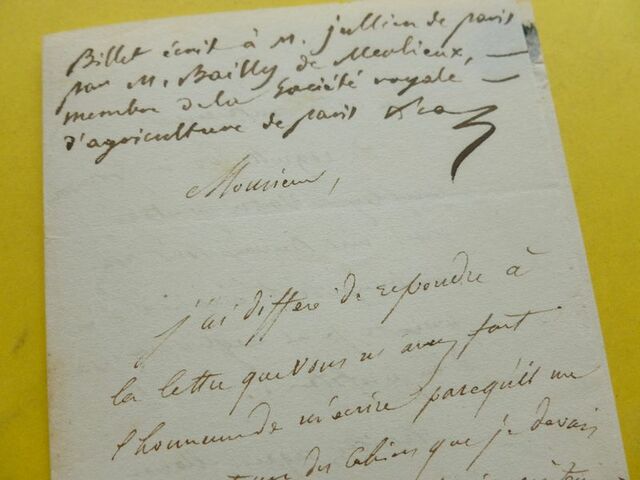 Billet écrit à M. jullien de paris
par M. Bailly de Merlieux,
membre de la Société royale
d'agriculture de paris &ca
Monsieur,
j'ai différé de repondre à
la lettre que vous m'avez fait
l'honneur de m'écrire parcequ'il me
des Cahiers que je devais